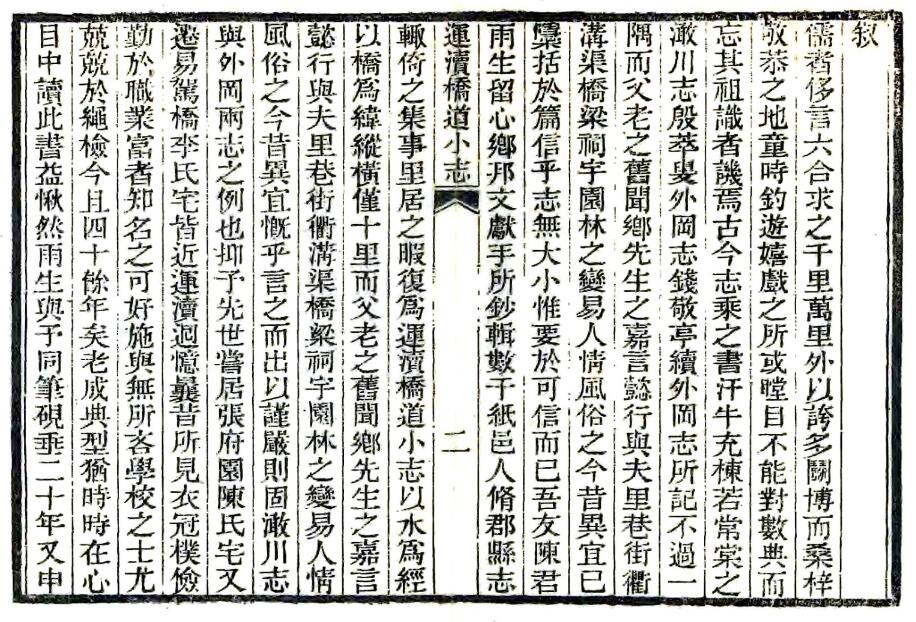 敍
儒者侈言六合求之千里萬里外以誇多鬭博而桑梓
敬恭之地童時釣遊嬉戲之所或瞠目不能對數典而
忘其祖識者譏焉古今志乘之書汗牛充棟若常棠之
澉川志殷萃叟外岡志錢敬亭續外岡志所記不過一
隅而父老之舊聞鄉先生之嘉言懿行與夫里巷街衢
溝渠橋梁祠宇園林之變易人情風俗之今昔異宜已
櫽括於篇信乎志無大小惟要於可信而已吾友陳君
雨生留心鄉邦文獻手所鈔輯數千紙邑人脩郡縣志
運瀆橋道小志
二
輙倚之集事里居之暇復爲運瀆橋道小志以水爲經
以橋爲緯縱橫僅十里而父老之舊聞鄉先生之嘉言
懿行與夫里巷街衢溝渠橋梁祠宇園林之變易人情
風俗之今昔異宜慨乎言之而出以謹嚴則固澉川志
與外岡兩志之例也抑予先世嘗居張府園陳氏宅又
遷易駕橋李氏宅皆近運瀆迴憶曩昔所見衣冠樸儉
勤於職業富者知名之可好施與無所吝學校之士尤
兢兢於繩檢今且四十餘年矣老成典型猶時時在心
目中讀此書益愀然雨生與予同筆硯垂二十年又申